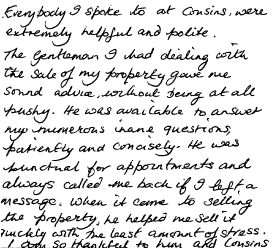 Everybody I spoke to at Cousins, were
extremely helpful and polite.
The Gentleman I had dealing with
the sale of my property gave me
sound advice, without being at all
pushy. He was available to answer
my numerous inane questions,
patiently and concisely. He was
punctual for appointments and
always called me back if I left a
message. When it came to selling
the property, he helped me sell it
quickly with the least amount of stress.
I am so thankful to him and Cousins